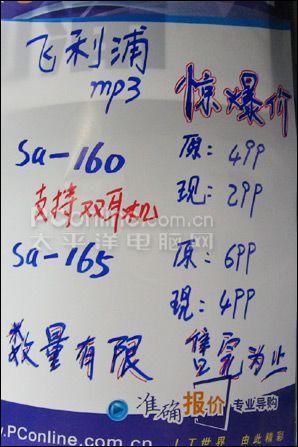 飞利浦
mp3
惊爆价
sa-160
原：499
现：299
支持双耳机
PConline.com.cn
太平洋电脑网
sa-165
原：699
現：499
数量有限
售完为止
准确报价专业导购
www.PConline.com.cn
人工世界 由此精彩